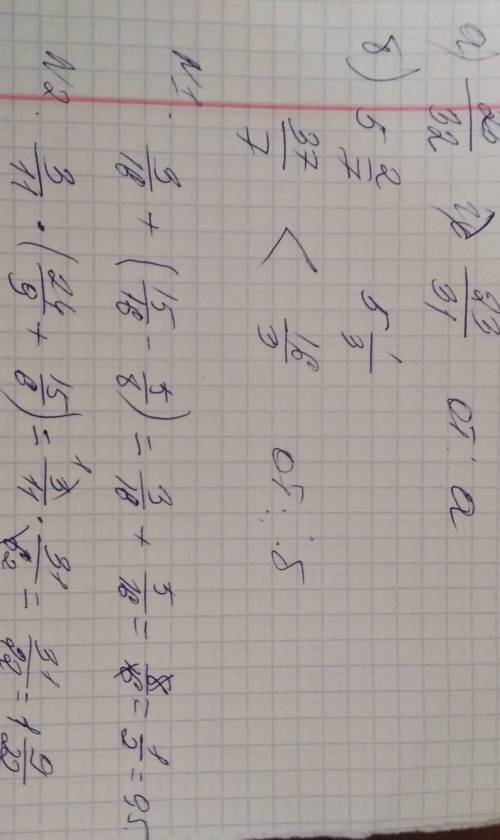 а) 20/32 и 23/31 от: а
б) 5 2/7 5 1/3
37/7 < 16/3 от: б
N1. 3/16 + (15/16 - 5/8) = 3/16 + 5/16 = 8/16 = 1/2 = 0,5
N2. 3/11 · (24/9 + 15/6) = 3/11 · 31/6 = 31/22 = 1 9/22